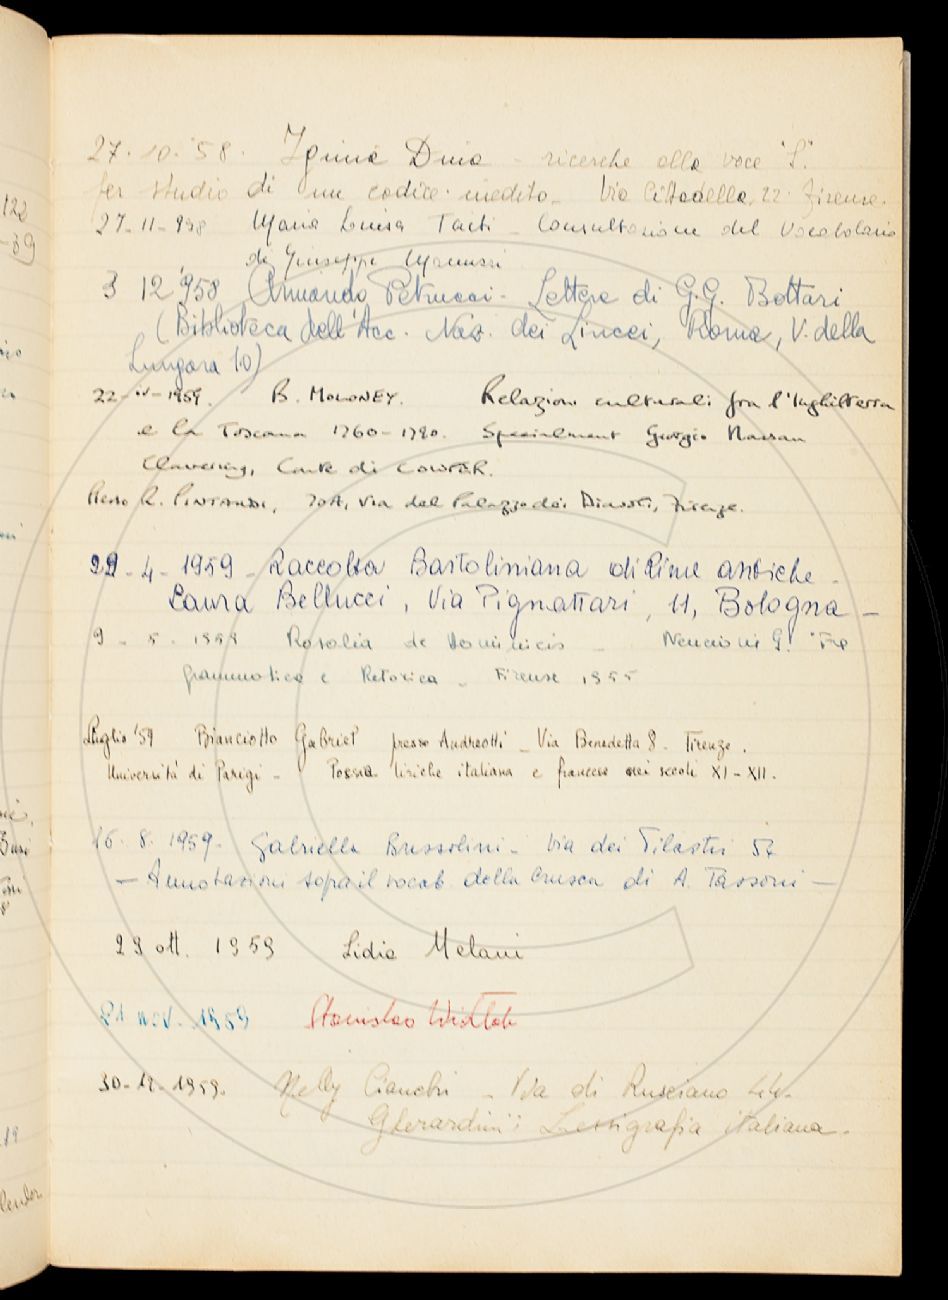 27.10.'58. Igina Dina - ricerche alla voce "S".
Per studio di un codice inedito - Via Cittadella, 22. Firenze.
27-11-958 Maria Luisa Tacti - Consultazione del Vocabolario
de Giuseppe Manuzzi
3 12 '958 Armando Petrucci - Lettere di G.G. Bottari
(Biblioteca dell'Acc. Naz. dei Lincei, Roma, V. della
Lungara 10)
22-IV-1959. B. MOLONEY. Relazioni culturali fra l'Inghilterra
e la Toscana 1760-1790. Specialment Giorgio Nassau
Clavering, Conte di COWPER.
Presso R. PINTANDI, 30A, Via del Palazzo dei Diavoli, Firenze.
29-4-1959 - Raccolta Bartoliniana di Rime antiche -
Laura Bellucci, Via Pignattari, 11, Bologna -
9 - 5 - 1959 Rosalia de Dominicis - Nencioni G. "Fra
grammatica e Retorica - Firenze 1955
Luglio '59 Bianciotto Gabriel presso Andreotti - Via Benedetta 8. Firenze.
Università di Parigi - Poesia liriche italiana e francese nei secoli XI-XII.
16.8.1959. Gabriella Brussolini - Via dei Pilastri 57
- Annotazioni sopra il vocab. della Crusca di A. Tassoni -
29 ott. 1959 Lidia Melani
21 nov. 1959 Stanislao
30-12-1959. Nelly Cianchi - Via di Rusciano 44.
Gherardini: Lessigrafia italiana.
122
-39